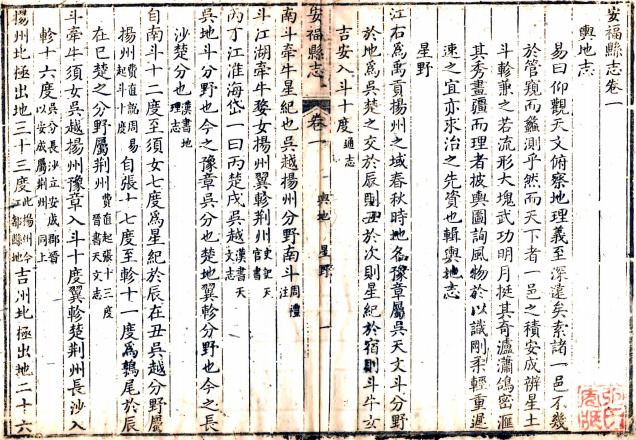 安福縣志卷一
輿地志
易曰仰觀天文俯察地理義至深遠矣索諸一邑不幾
於管窺而蠡測乎然而天下者一邑之積安成辨星土
斗軫兼之若流形大塊武功明月挺其奇瀘瀟鴿密滙
其秀畫疆而理者披輿圖詢風物於以識剛柔輕重遲
速之宜亦求治之先資也輯輿地志
星野
江右為禹貢揚州之域春秋時地名豫章屬吳天文斗分野
於地為吳楚之交於辰則丑於次則星紀於宿則斗牛玄
吉安入斗十度通志
安福縣志 卷一 輿地 星野 一
南斗牽牛星紀也吳越揚州分野南斗周禮注
斗江湖牽牛婺女揚州翼軫荆州史記天官書
丙丁江淮海岱一曰丙楚戌吳越漢書天文志
吳地斗分野也今之豫章吳分也楚地翼軫分野也今之長
沙楚分也漢書地理志
自南斗十二度至須女七度為星紀於辰在丑吳越分野屬
揚州費直說周易起斗十度自張十七度至軫十一度為鶉尾於辰
在巳楚之分野屬荆州費直起張十三度晉書天文志
斗牽牛須女吳越揚州豫章入斗十度翼軫楚荆州長沙入
軫十六度吳分長沙立安成郡晉以安成屬荆州同上
揚州北極出地三十三度此揚州今江都縣地吉州北極出地二十六